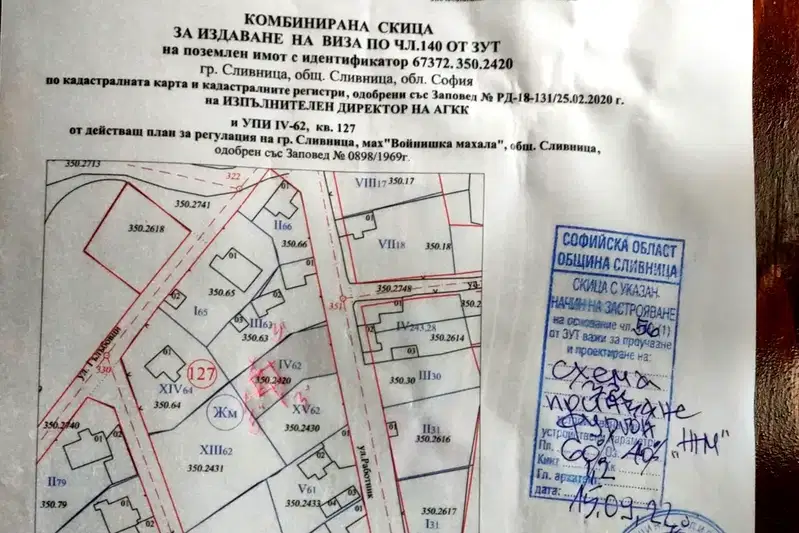 КОМБИНИРАНА СКИЦА
ЗА ИЗДАВАНЕ НА ВИЗА ПО ЧЛ.140 ОТ ЗУТ
на поземлен имот с идентификатор 67372.350.2420
гр. Сливница, общ. Сливница, обл. София
по кадастралната карта и кадастралните регистри, одобрени със Заповед № РД-18-131/25.02.2020 г.
на ИЗПЪЛНИТЕЛЕН ДИРЕКТОР НА АГКК
и УПИ IV-62, кв. 127
от действащ план за регулация на гр. Сливница, мах"Войнишка махала", общ. Сливница,
одобрен със Заповед № 0898/1969г.
350.2713
322
350.2741
350.2618
01
II66
350.66
VIII17 350.17
01
VII18
350.18
01
350.65
02
I65
03
III63
350.63
01
351
350.2748
01
02
IV243,28
350.2614
ул. Гълъбовци
330
01
XIV64
350.64
127
Жм
IV62
350.2420
XV62
350.2430
350.30
III30
XIII62
350.2431
01
II31
350.2616
350.2740
01
02
II79
350.79
01
V61
350.2433
ул.Работник
I31
350.2617
СОФИЙСКА ОБЛАСТ
ОБЩИНА СЛИВНИЦА
СКИЦА С УКАЗАН.
НАЧИН НА ЗАСТРОЯВАНЕ
на основание чл.
от ЗУТ важи за проучване
и проектиране на:
схема
"ЖМ"
Пл. 60
40%
Кинт 1,2
Гл. архитект
дата: 15.09.22